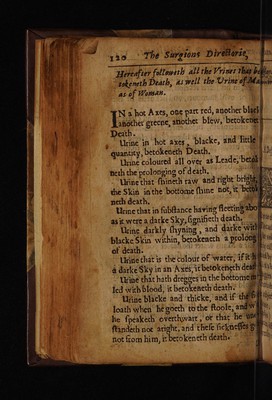 120 The Surgions Directorie,
Hereafter followeth all the Vrines that be-
tokeneth Death, as well the Vrine of Man
as of Woman.
IN a hot Axes, one part red, another black
another greene, another blew, betokenet
Death.
Urine in hot axes, blacke, and little
quantity, betokeneth Death.
Urine coloured all over as Leade, betok
neth the prolonging of death.
Urine that shineth raw and right bright,
the Skin in the bottome shine not, it betok
neth death.
Urine that in substance having fleeting abo
as it were a darke Sky, signifieth death.
Urine darkly shyning, and darke with
blacke Skin within, betokeneth a prolong
of death.
Urine that is the colour of water, if it h
a darke Sky in an Axes, it betokeneth deat
Urine that hath dregges in the bottome m
led with blood, it betokeneth death.
Urine blacke and thicke, and if the
loath when he goeth to the stoole, and w
he speaketh overthwart, or that he un
standeth not aright, and these sicknesses g
not from him, it betokeneth death.